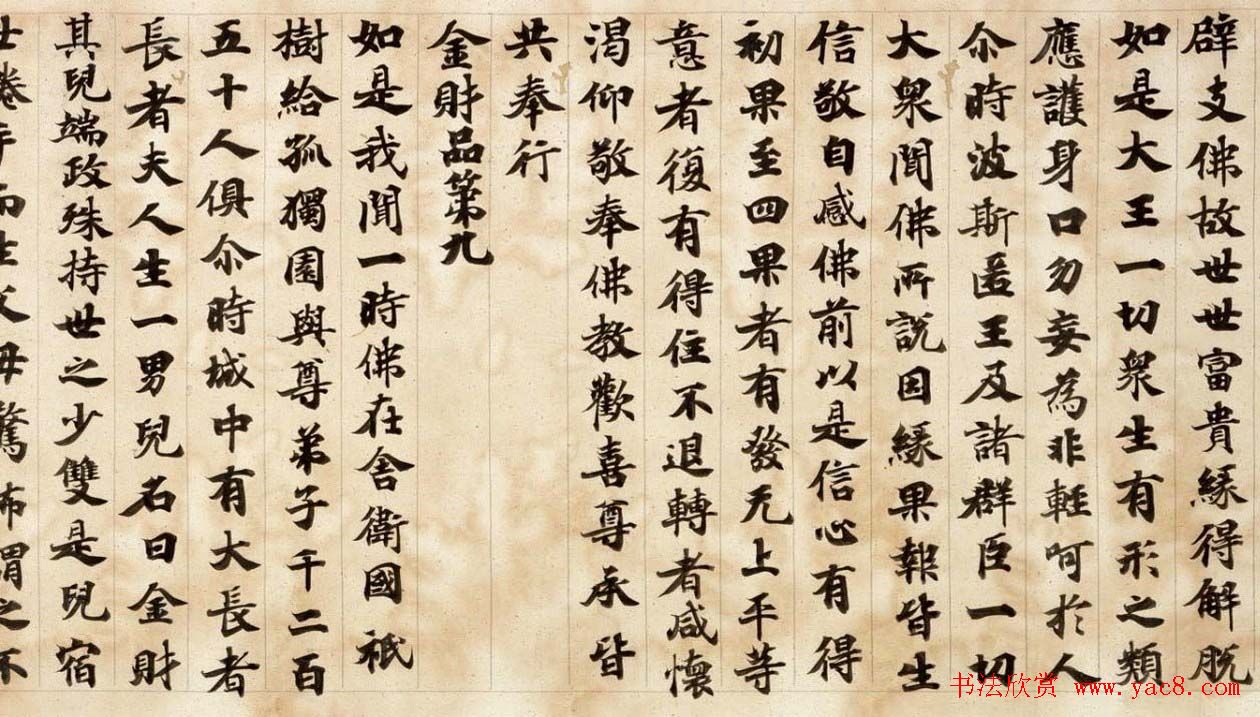 辟支佛故世世富貴緣得解脫
如是大王一切眾生有形之類
應護身口勿妄為非輕呵於人
尒時波斯匿王及諸群臣一切
大眾聞佛所說因緣果報皆生
信敬自感佛前以是信心有得
初果至四果者有發无上平等
意者復有得住不退轉者咸懷
渴仰敬奉佛教歡喜尊承皆
共奉行
金財品第九
如是我聞一時佛在舍衛國祇
樹給孤獨園與尊弟子千二百
五十人俱尒時城中有大長者
長者夫人生一男兒名曰金財
其兒端政殊持世之少雙是兒宿
世捲手而生父母驚怖謂之不
书法欣赏 www.yac8.com